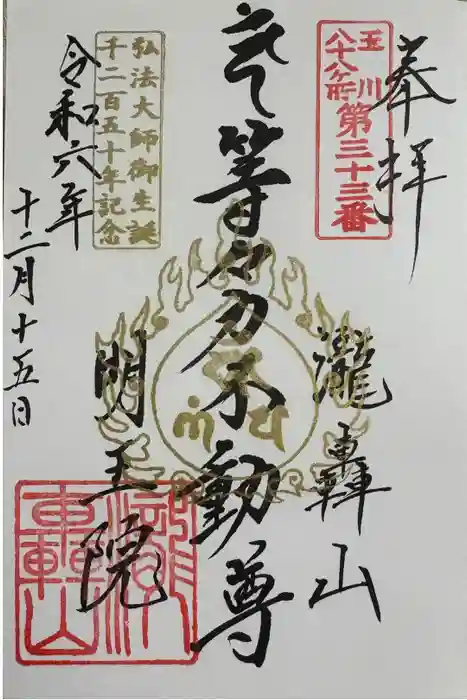 奉拝
玉川
八十八ヶ所
第三十三番
瀧轟山
等々力不動尊
弘法大師御生誕
千二百五十年記念
明王院
令和六年
十二月十五日
瀧
轟山